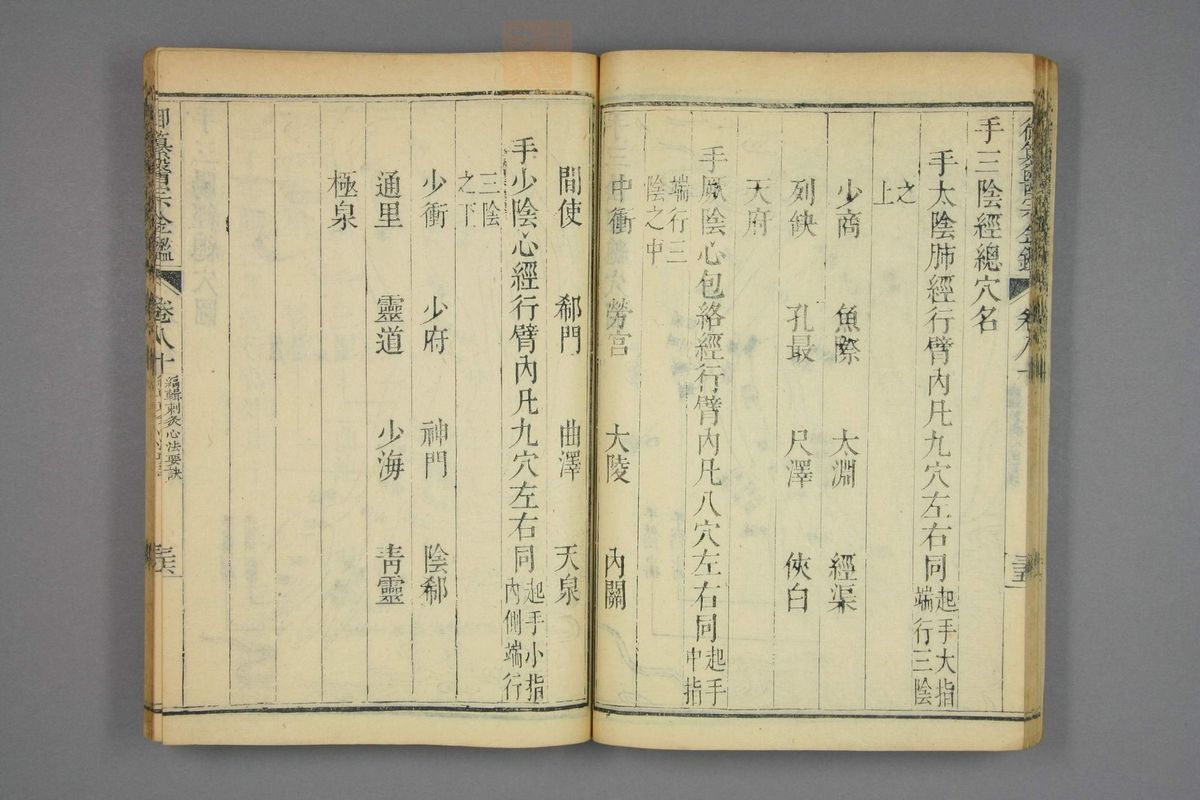 手三陰經總穴名
手太陰肺經行臂內凡九穴左右同起手大指端行三陰
之上
少商 魚際 太淵 經渠
列缺 孔最 尺澤 俠白
天府
手厥陰心包絡經行臂內凡八穴左右同起手中指
端行三陰之中
中衝 勞宮 大陵 內關
卷八十
三五
間使 郄門 曲澤 天泉
手少陰心經行臂內凡九穴左右同起手小指內側端行
三陰之下
少衝 少府 神門 陰郄
通里 靈道 少海 青靈
極泉
御纂醫宗金鑑
卷八十
編輯刺灸心法要訣
三六